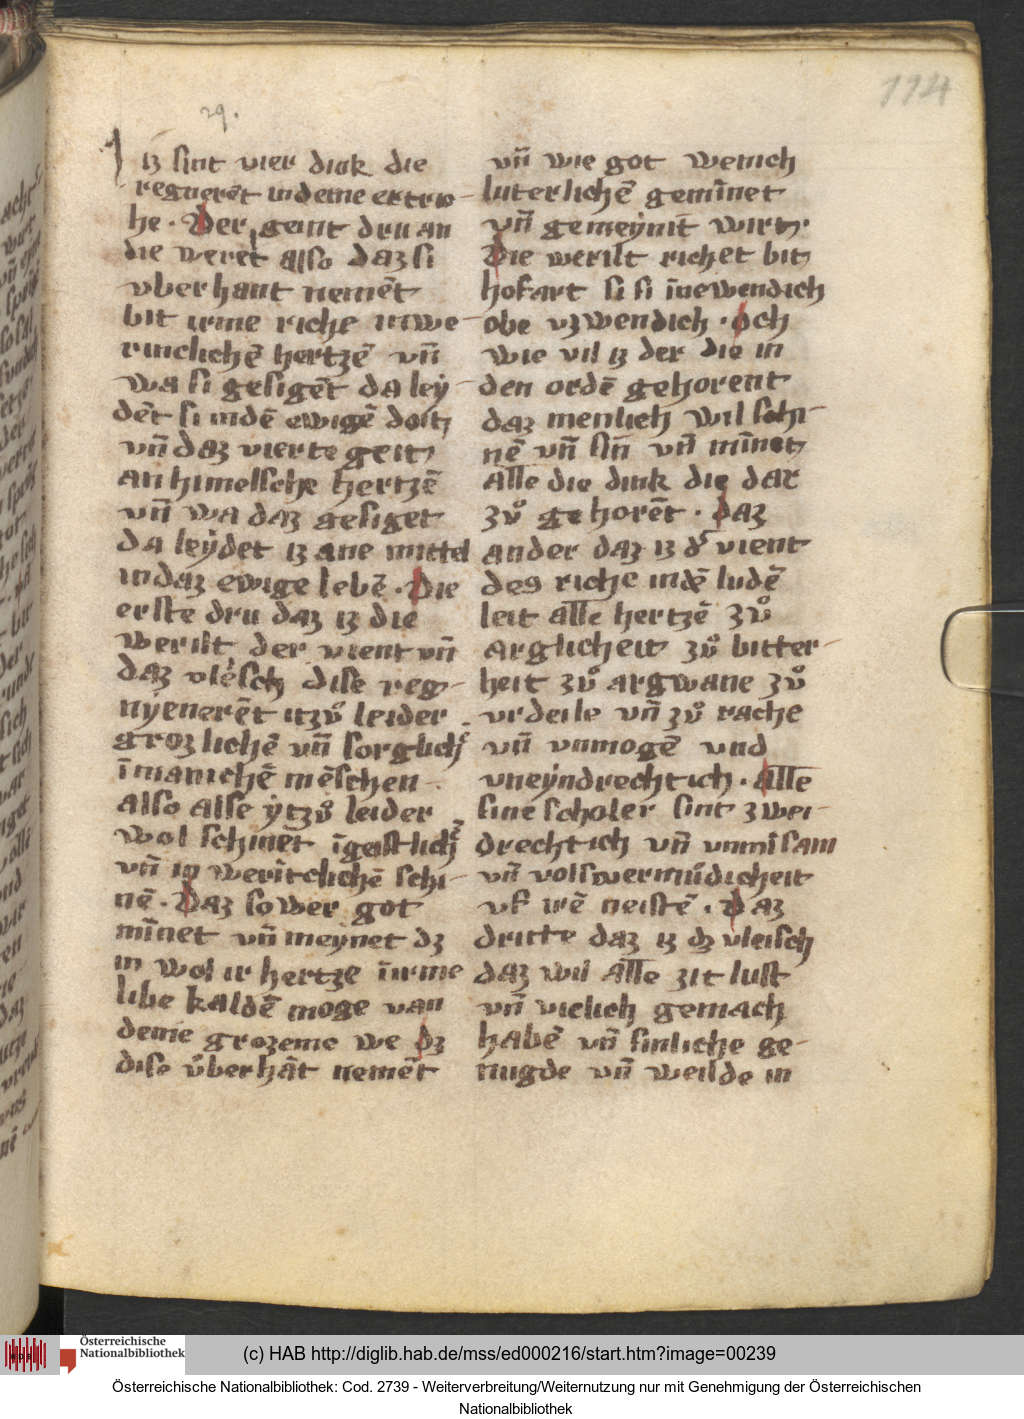 29.
114
iz sint vier dink die
regnerēt in deme ertrıo-
he · Der geint dru an
die weret also daz si
vber hant nemēt
bit irme riche in we-
rinclichē hertzē vn̄
wa si gesigēt da ley-
dēt si in dē ewigē doit
vn̄ daz vierte geit
an himelsche hertzē
vn̄ wa daz gesiget
da leydet iz ane mittel
in daz ewige lebē · Die
erste dru daz iz die
werilt der vient vn̄
daz vleisch dise reg-
nyenerēt itzů leider
groz lichē vn̄ sorglich͛
īmanichē mēschen
also alse ytzů leider
wol schinēt ī geistlich͛ē
vn̄ in werītclichē schi-
nē · Daz so wer got
mīnet vn̄ meynet dz
in wol ir hertze īirme
libe kaldē moge van
deme grozeme we dz
dise v̊berhāt nemēt
vn̄ wie got wenich
luterlichē gemīnet
vn̄ gemeynit wirt·
Die werilt richet bit
hofart si si īnewendich
obe vzwendich · och
wie vil iz der die in
den ordē gehorent
daz menlich wil schi-
nē vn̄ sin̄ vn̄ mīnet
alle die dink die dar
zů ge horēt · daz
ander daz iz d͛ vient
des riche in dē ludē
leit alle hertzē zů
arglicheit zů bitter-
heit zů argwane zů
vrdeile vn̄ zů rache
vn̄ vnmogē vnd
vneyndrechtich · alle
sine scholer sint zwei-
drechtich vn̄ vnmīsam
vn̄ vol swermůdicheit
vf irē neistē · Daz
dritte daz iz dz vleisch
daz wil alle zit lust
vn̄ vielich gemach
habē vn̄ sinliche ge-
nugde vn̄ weilde in
(c) HAB http://diglib.hab.de/mss/ed000216/start.htm?image=00239
Österreichische
Nationalbibliothek
Österreichische Nationalbibliothek: Cod. 2739 - Weiterverbreitung/Weiternutzung nur mit Genehmigung der Österreichischen
Nationalbibliothek